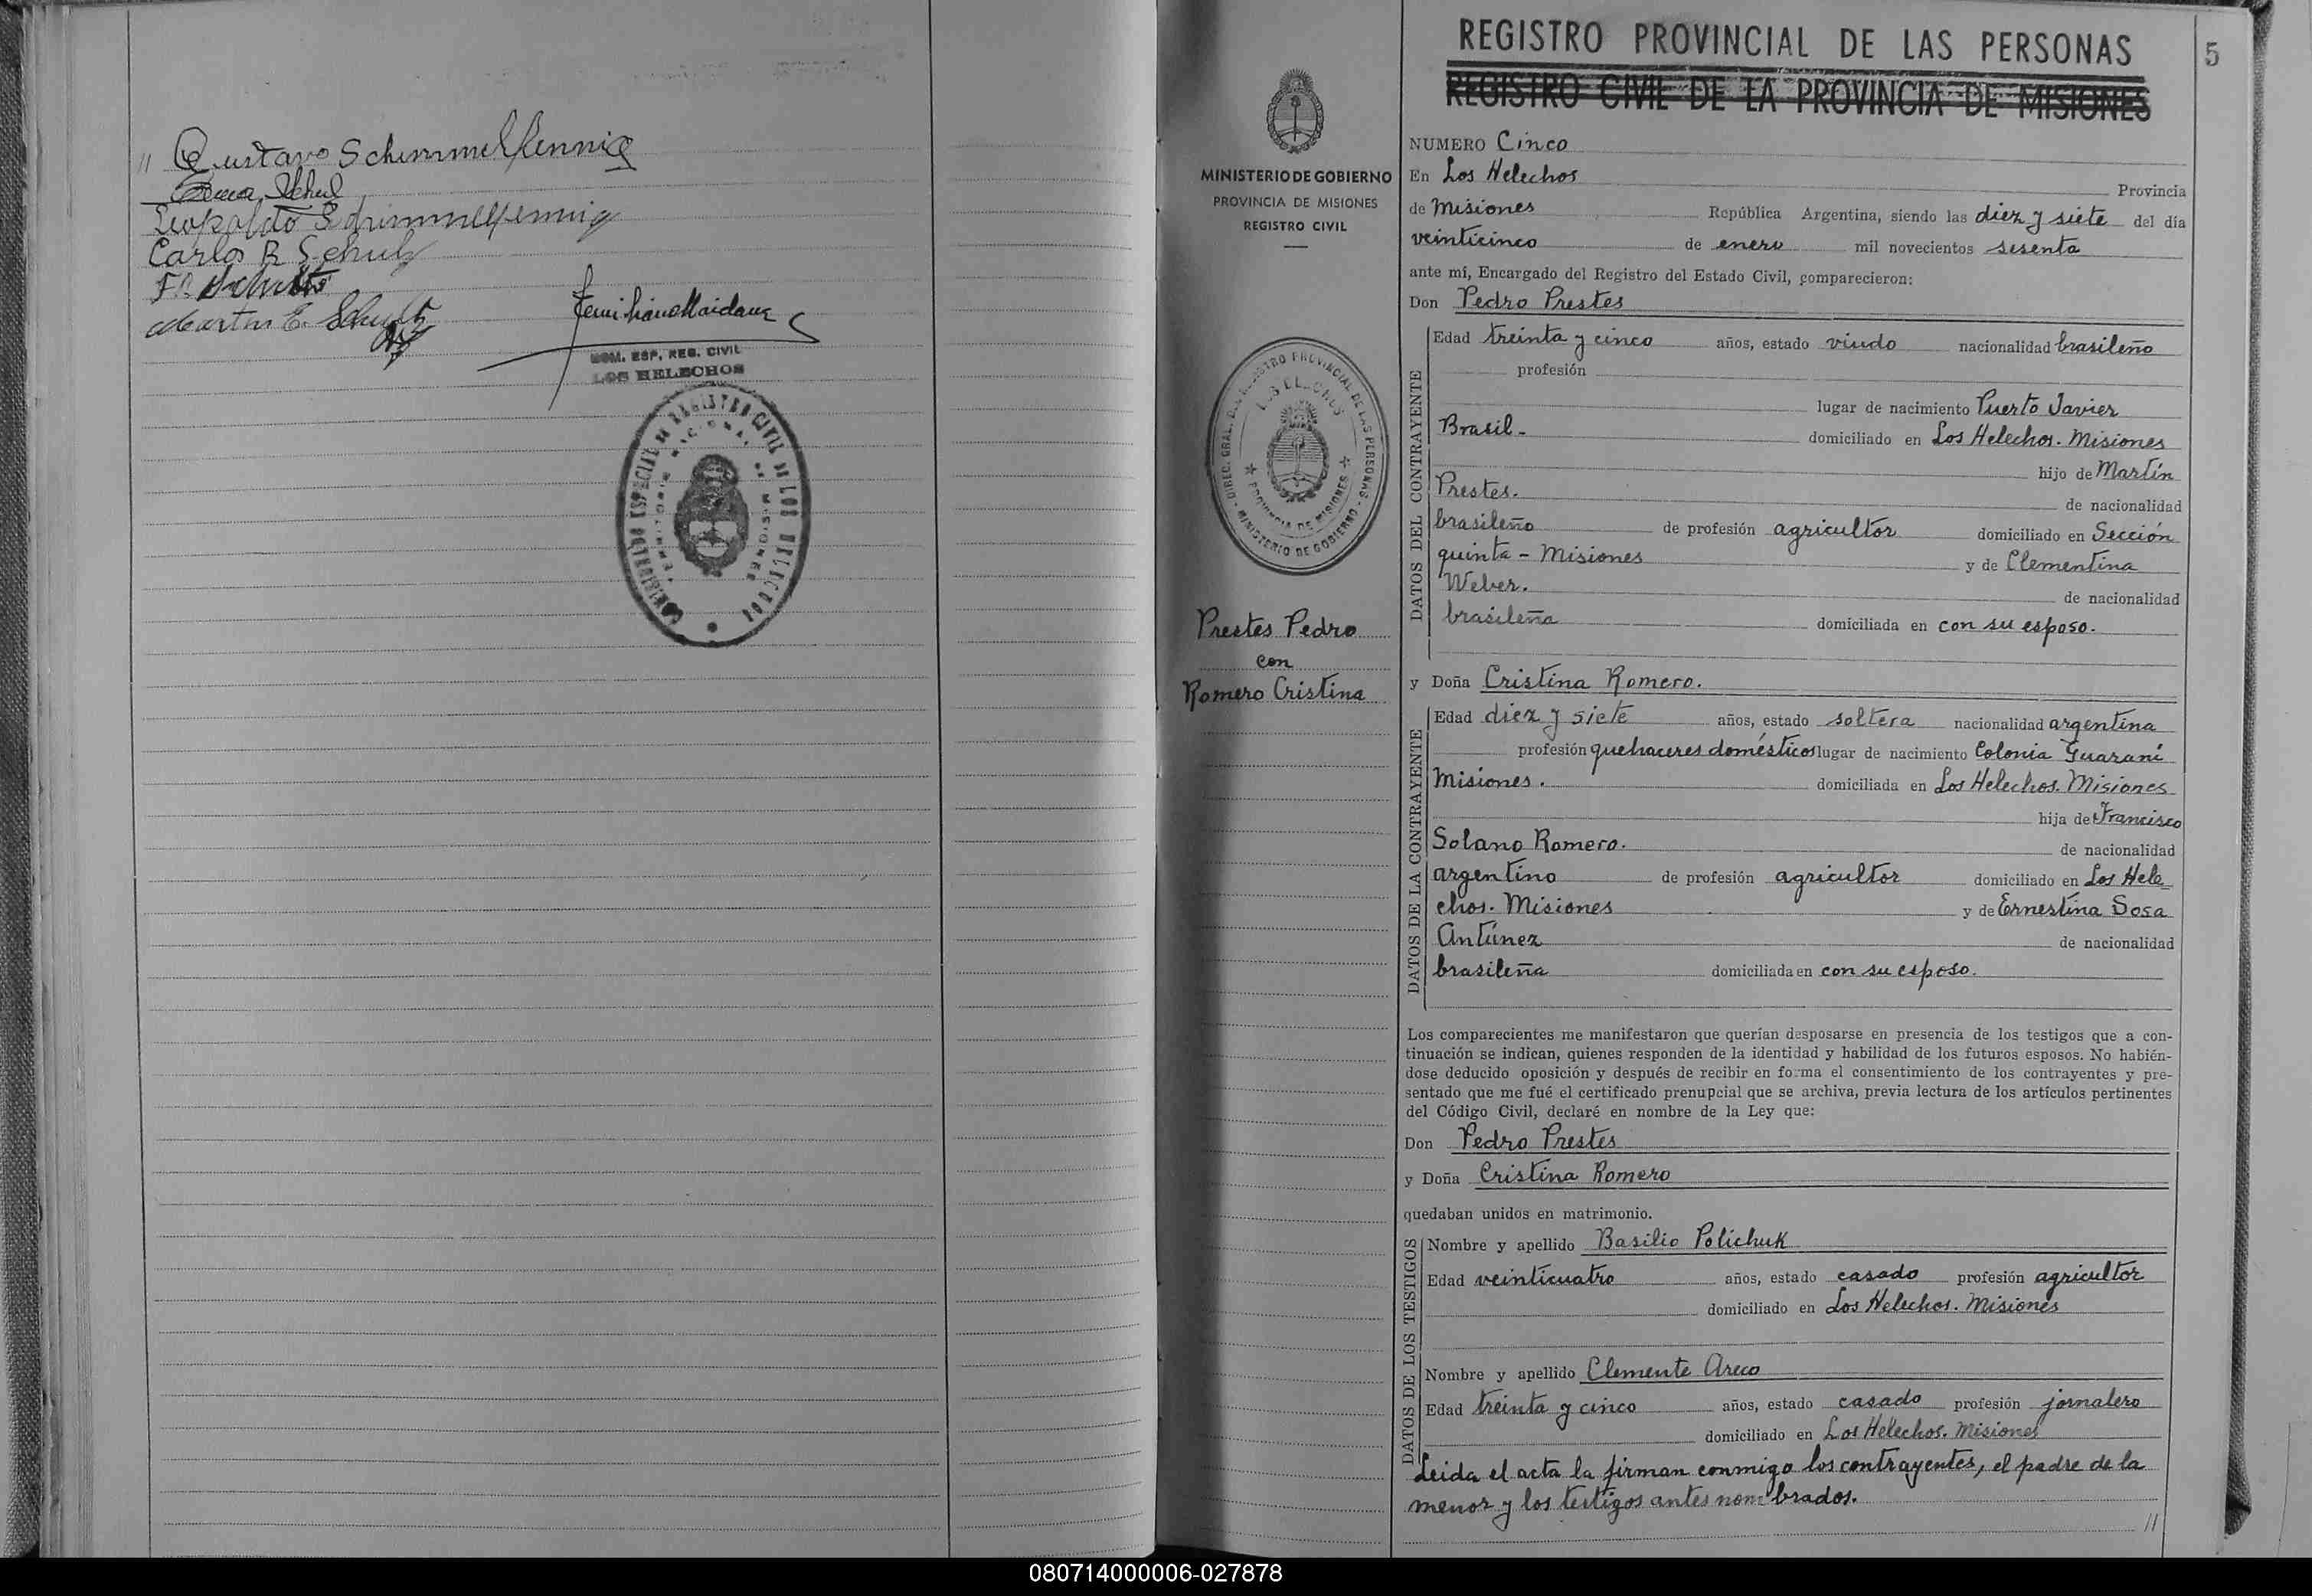 // Gustavo Schimmelfennig
Leopoldo Schimmelfennig
Carlos R Schulz
Martin E. Schultz
NOM. ESP. REG. CIVIL
LOS HELECHOS
REGISTRO CIVIL DE LOS HELECHOS
5
REGISTRO PROVINCIAL DE LAS PERSONAS
REGISTRO CIVIL DE LA PROVINCIA DE MISIONES
MINISTERIO DE GOBIERNO
PROVINCIA DE MISIONES
REGISTRO CIVIL
DIREC. GRAL. DEL REGISTRO PROVINCIAL DE LAS PERSONAS
LOS HELECHOS
PROVINCIA DE MISIONES
MINISTERIO DE GOBIERNO
Prestes Pedro
con
Romero Cristina
NUMERO Cinco
En Los Helechos Provincia
de Misiones República Argentina, siendo las diez y siete del día
veinticinco de enero mil novecientos sesenta
ante mí, Encargado del Registro del Estado Civil, comparecieron:
Don Pedro Prestes
DATOS DEL CONTRAYENTE
Edad treinta y cinco años, estado viudo nacionalidad brasileño
profesión
lugar de nacimiento Puerto Javier
Brasil.- domiciliado en Los Helechos. Misiones
hijo de Martín
Prestes. de nacionalidad
brasileño de profesión agricultor domiciliado en Sección
quinta - Misiones y de Clementina
Weber. de nacionalidad
brasileña domiciliada en con su esposo.
y Doña Cristina Romero.
DATOS DE LA CONTRAYENTE
Edad diez y siete años, estado soltera nacionalidad argentina
profesión quehaceres domésticos lugar de nacimiento Colonia Guaraní
Misiones. domiciliada en Los Helechos. Misiones
hija de Francisco
Solano Romero. de nacionalidad
argentino de profesión agricultor domiciliado en Los Hele
chos. Misiones y de Ernestina Sosa
Antúnez de nacionalidad
brasileña domiciliada en con su esposo.
Los comparecientes me manifestaron que querían desposarse en presencia de los testigos que a con-
tinuación se indican, quienes responden de la identidad y habilidad de los futuros esposos. No habién-
dose deducido oposición y después de recibir en forma el consentimiento de los contrayentes y pre-
sentado que me fué el certificado prenupcial que se archiva, previa lectura de los artículos pertinentes
del Código Civil, declaré en nombre de la Ley que:
Don Pedro Prestes
y Doña Cristina Romero
quedaban unidos en matrimonio.
DATOS DE LOS TESTIGOS
Nombre y apellido Basilio Polichuk
Edad veinticuatro años, estado casado profesión agricultor
domiciliado en Los Helechos. Misiones
Nombre y apellido Clemente Areco
Edad treinta y cinco años, estado casado profesión jornalero
domiciliado en Los Helechos. Misiones
Leida el acta la firman conmigo los contrayentes, el padre de la
menor y los testigos antes nombrados.
//
080714000006-027878